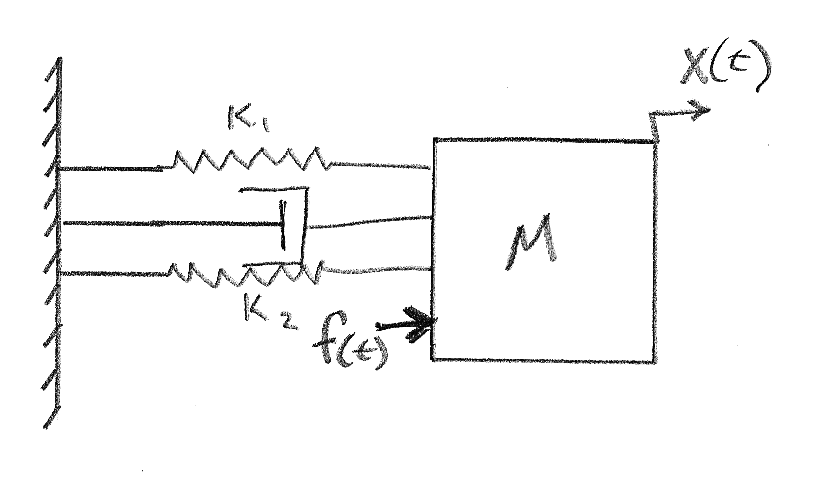 X(t)
K1
M
K2
f(t)